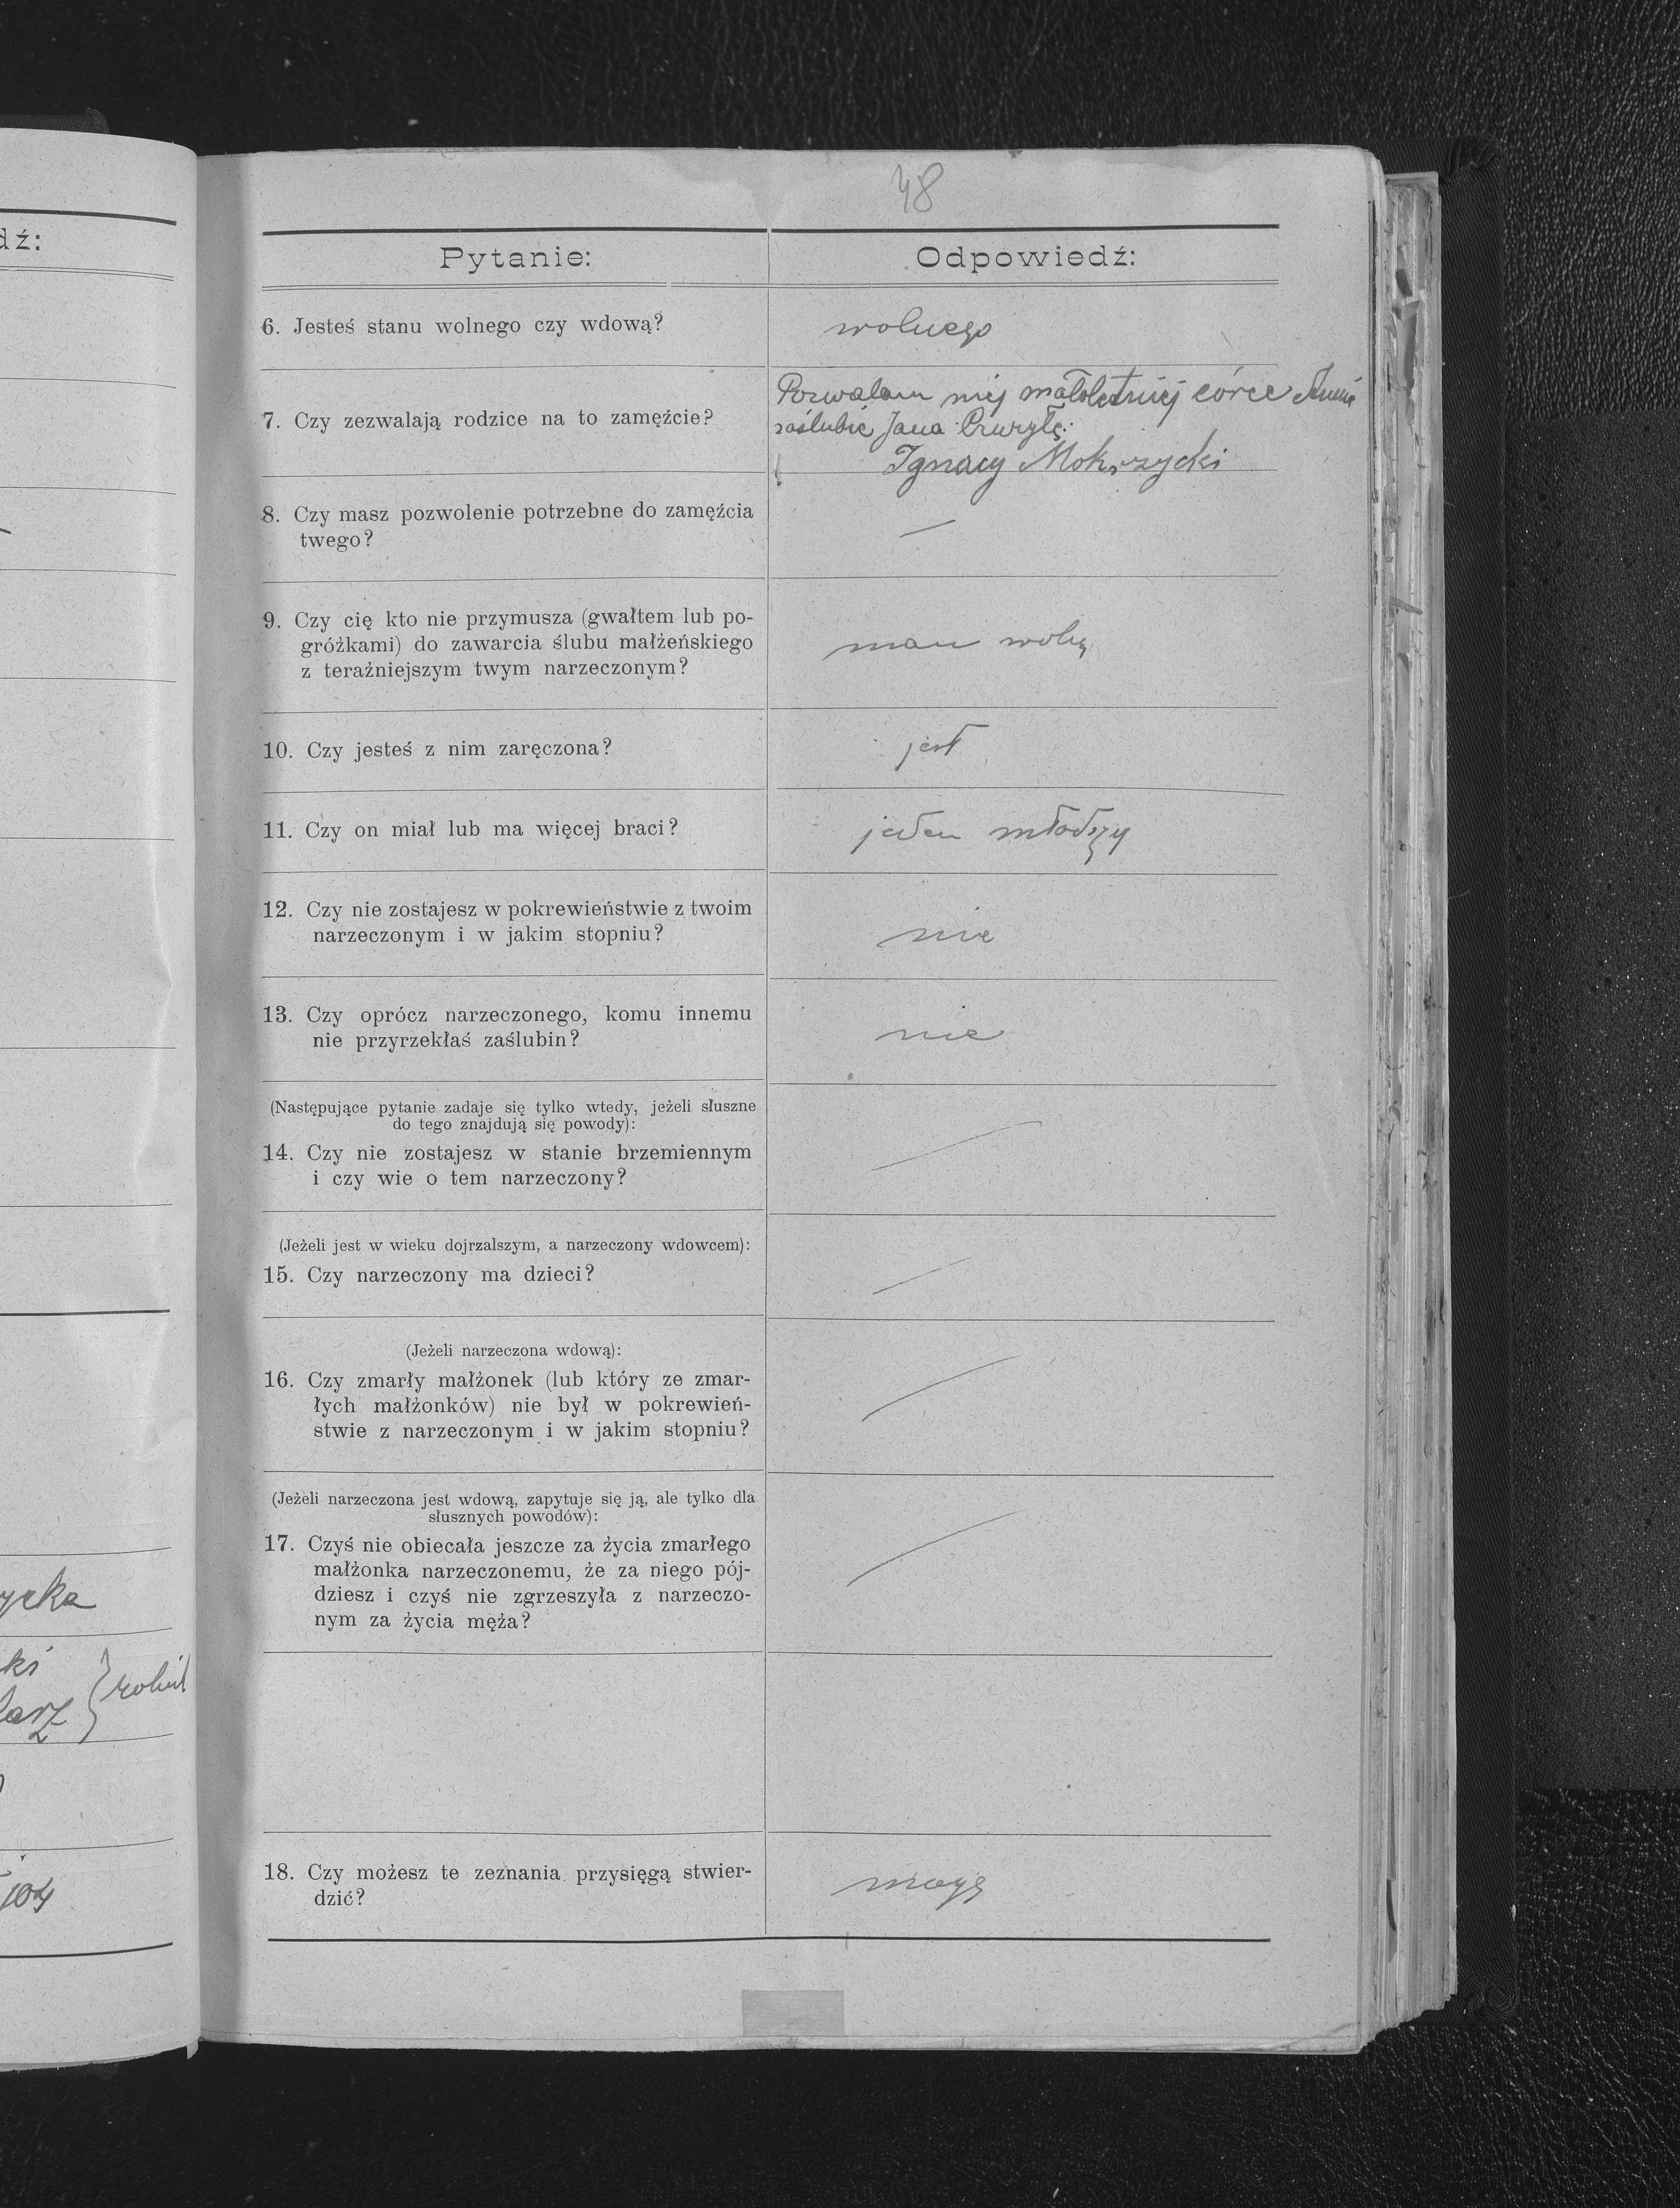 48
dź:
Pytanie:
Odpowiedź:
6. Jesteś stanu wolnego czy wdową?
wolnego
7. Czy zezwalają rodzice na to zamęźcie?
Pozwalam mej małoletniej córce Annie
zaślubić Jana
Ignacy Mokrzycki
8. Czy masz pozwolenie potrzebne do zamęźcia
twego?
—
9. Czy cię kto nie przymusza (gwałtem lub po-
gróżkami) do zawarcia ślubu małżeńskiego
z teraźniejszym twym narzeczonym?
mam wolę
10. Czy jesteś z nim zaręczona?
jest
11. Czy on miał lub ma więcej braci?
jeden młodszy
12. Czy nie zostajesz w pokrewieństwie z twoim
narzeczonym i w jakim stopniu?
nie
13. Czy oprócz narzeczonego, komu innemu
nie przyrzekłaś zaślubin?
nie
(Następujące pytanie zadaje się tylko wtedy, jeżeli słuszne
do tego znajdują się powody):
14. Czy nie zostajesz w stanie brzemiennym
i czy wie o tem narzeczony?
(Jeżeli jest w wieku dojrzalszym, a narzeczony wdowcem):
15. Czy narzeczony ma dzieci?
(Jeżeli narzeczona wdową):
16. Czy zmarły małżonek (lub który ze zmar-
łych małżonków) nie był w pokrewień-
stwie z narzeczonym i w jakim stopniu?
(Jeżeli narzeczona jest wdową, zapytuje się ją, ale tylko dla
słusznych powodów):
17. Czyś nie obiecała jeszcze za życia zmarłego
małżonka narzeczonemu, że za niego pój-
dziesz i czyś nie zgrzeszyła z narzeczo-
nym za życia męża?
ycka
ki
larz
104
18. Czy możesz te zeznania przysięgą stwier-
dzić?
mogę